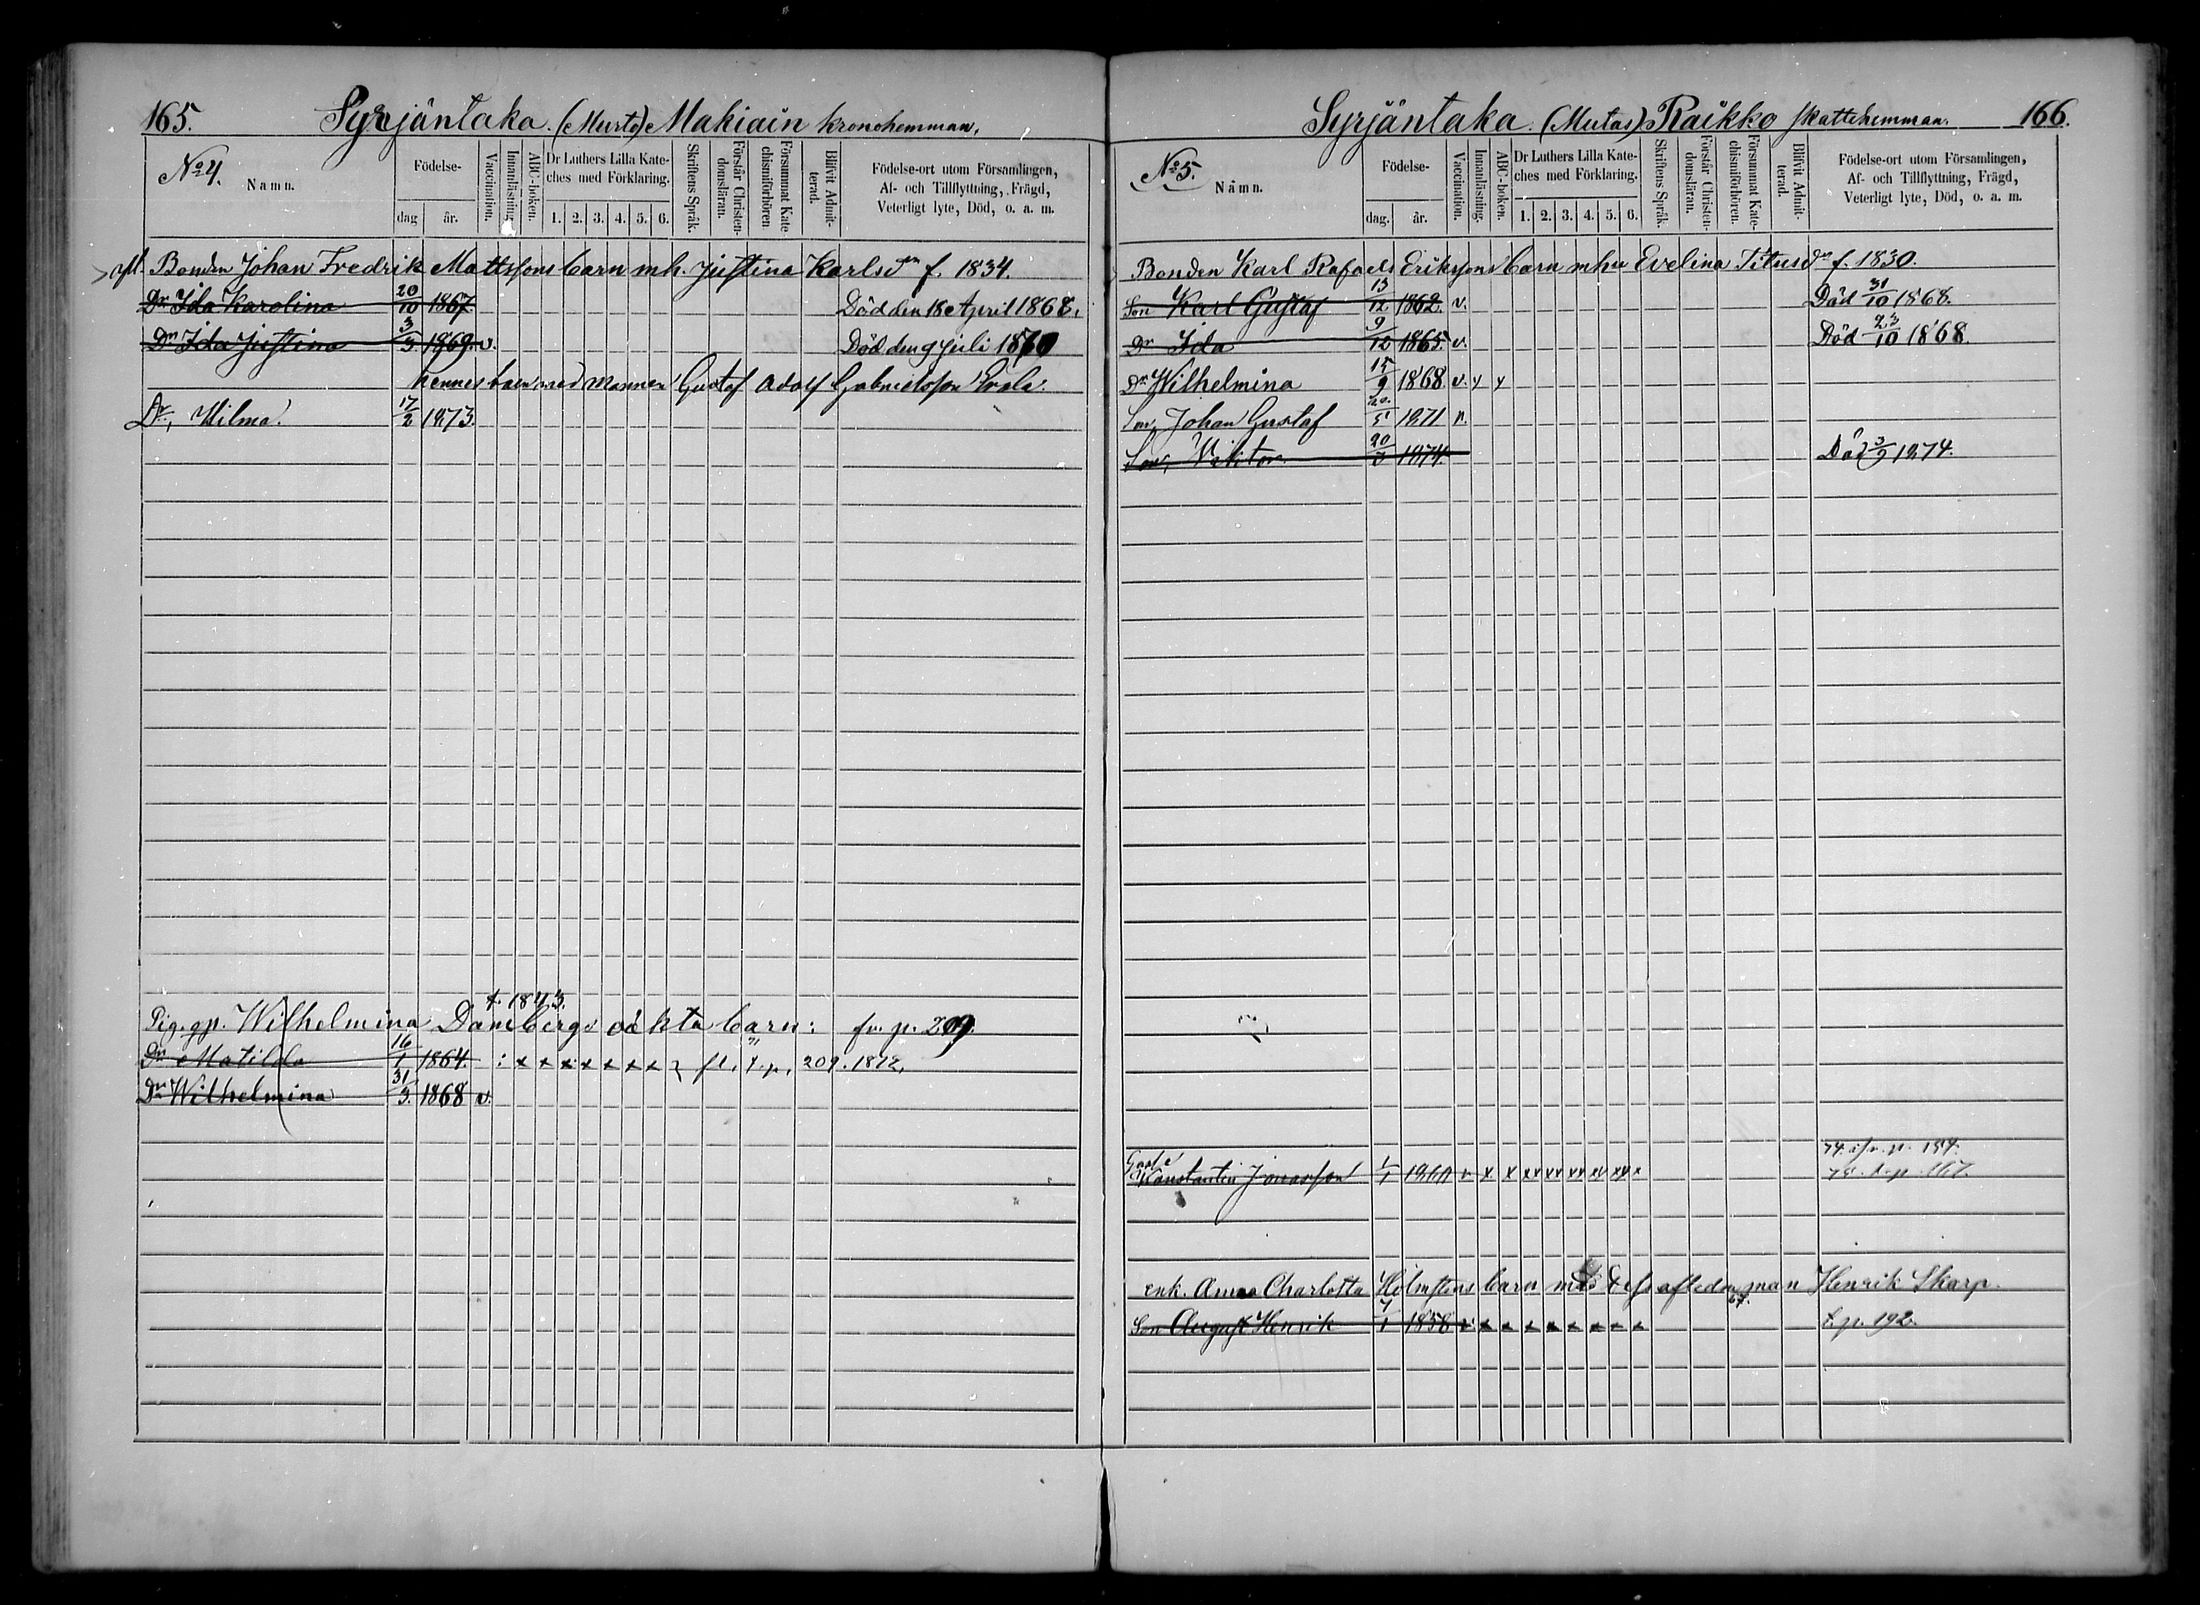 165. Syrjäntaka. (Murto) Makiain kronohemman.
No 4.
Namn.
Födelse-
dag
år.
Vaccination.
Innanläsning.
ABC-boken.
Dr Luthers Lilla Kate-
ches med Förklaring.
1. 2. 3. 4. 5. 6.
Skriftens Språk.
Förstår Christen-
domsläran.
Försummat Kate-
chismiförhören
Blifvit Admit-
terad.
Födelse-ort utom Församlingen,
Af- och Tillflyttning, Frägd,
Veterligt lyte, Död, o. a. m.
Bonden Johan Fredrik Mattssons barn mh. Justina Karlsdr f. 1834.
Dr Ida Karolina 20/10 1867. Död den 18 April 1868.
Dr Ida Justina 3/3 1869. v. Död den 9 Juli 1870
hennes barn med mannen Gustaf Adolf Gabrielsson
Dr, Wilma. 17/2 1873.
f. 1843.
Pig. gp. Wilhelmina Danebergs oäkta barn: fr. p. 209
Dr Matilda 16/1 1864. : x x x x x x x fl. t. p. 209. 1872.
Dr Wilhelmina 31/3. 1868 v.
Syrjäntaka. (Mutas) Raikko skattehemman. 166.
No 5.
Namn.
Födelse-
dag.
år.
Vaccination.
Innanläsning.
ABC-boken.
Dr Luthers Lilla Kate-
ches med Förklaring.
1. 2. 3. 4. 5. 6.
Skriftens Språk.
Förstår Christen-
domsläran.
Försummat Kate-
chismiförhören.
Blifvit Admit-
terad.
Födelse-ort utom Församlingen,
Af- och Tillflyttning, Frägd,
Veterligt lyte, Död, o. a. m.
Bonden Karl Rafaels Erikssons barn mhu Evelina Titusdr f. 1830.
Son Karl Gustaf 13/12 1862. v. Död 31/10 1868.
Dr Ida 9/12 1865. v. Död 23/10 1868
Dr Wilhelmina 15/9 1868. v. y y
Son, Johan Gustaf 20/5 1871 v.
Son, Viktor 20/3 1874. Död 3/9 1874.
74. fr. p. 154.
Konstantin Jonasson 1/1 1860 v x x xv xv xv xv xv x 75. t. p. 167.
enk. Anna Charlotta Holmstens barn med dess afledne man Henrik Skarp.
Son August Henrik 7/1 1858 v x x x x x x x x 67. t. p. 192.